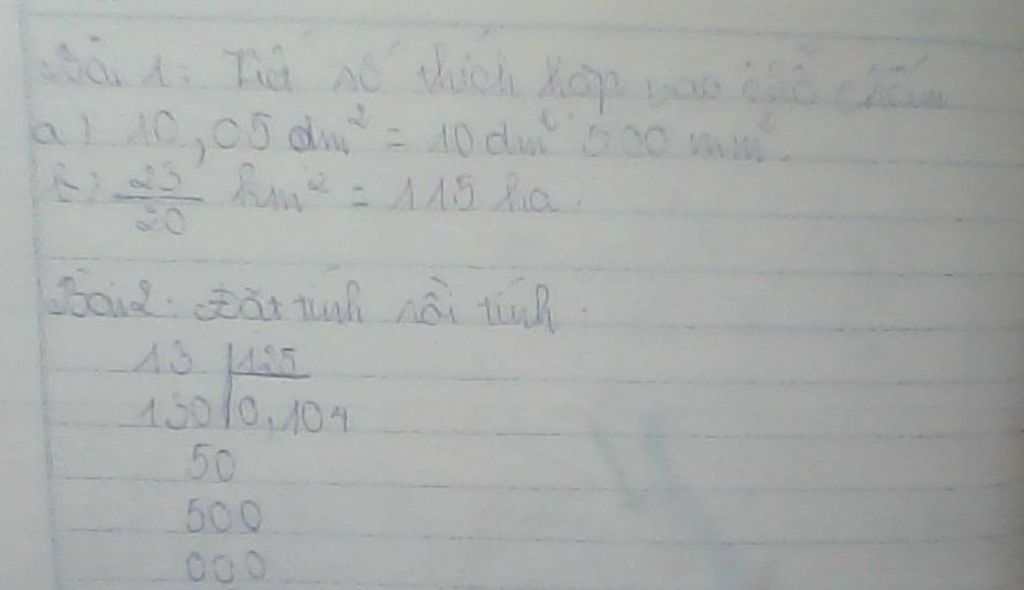 Bài 1: Viết số thích hợp vào chỗ chấm
a: 10,05 dm² = 10 dm² 500 mm².
b: 23/20 km² = 115 ha.
Bài 2: Đặt tính rồi tính.
13 | 125
130 | 0,104
50
500
000